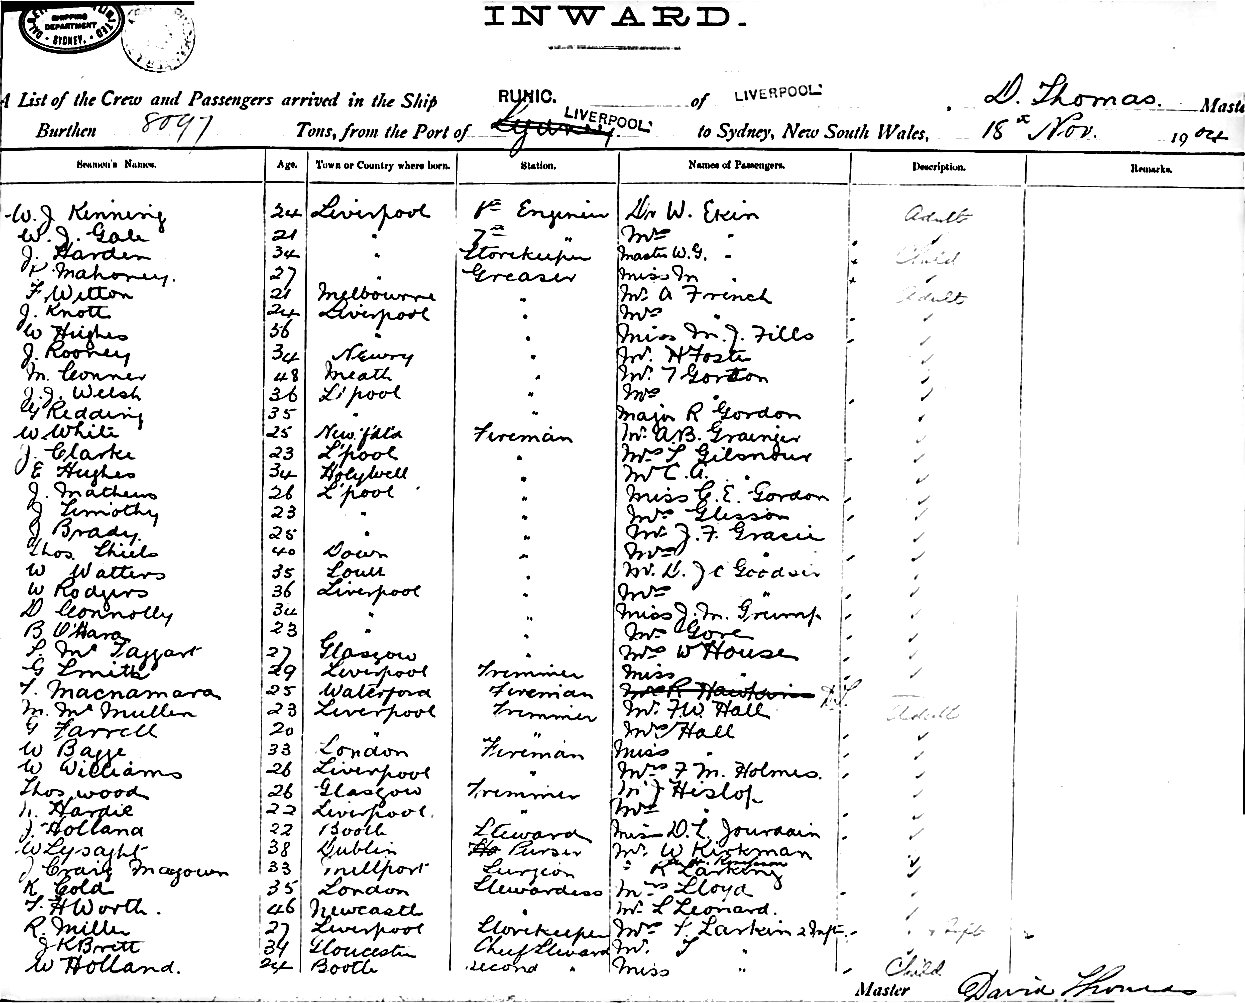 SHIPPING
DEPARTMENT
SYDNEY.
INWARD.
A List of the Crew and Passengers arrived in the Ship RUNIC. of LIVERPOOL. D. Thomas. Maste
Burthen 8097 Tons, from the Port of Sydney LIVERPOOL. to Sydney, New South Wales, 18th Nov. 1904
Seamen's Names. Age. Town or Country where born. Station. Names of Passengers. Description. Remarks.
W. J. Kinning 24 Liverpool Engineer Dr W. Ekin Adult
W. J. Gale 21 " 7th " Mrs "
J. Harden 34 " Storekeeper Master W.G. " Child
Mahoney. 27 " Greaser Miss M "
F Witton 21 Melbourne " Mr A French Adult
J. Knott 24 Liverpool " Mrs "
W Hughes 56 " " Miss M. J. Fills
J. Rooney 34 Newry " Mr. H Foster
M. Conner 48 Meath " Mr. T Gordon
J. J. Welsh 36 L'pool " Mrs "
G Redding 35 " " Major R Gordon
W White 25 New f'dld Fireman Mr. A.B. Grainger
J. Clarke 23 L'pool " Mrs S Gilmour
E Hughes 34 Holywell " Mr C. A. "
J. Mathews 26 L'pool " Miss G. E. Gordon
J Timothy 23 " " Mrs Glisson
J Brady. 25 " " Mr. J. F. Gracie
Thos. Shiels 40 Down " Mrs "
W Watters 35 Louth " Mr. D. J C Goodsir
W Rodgers 36 Liverpool " Mrs "
D Connolly 34 " " Miss J. M. Grump
B O'Hara 23 " " Mrs Gore
S. McTaggart 27 Glasgow " Mrs W House
G Smith 29 Liverpool Trimmer Miss "
T. Macnamara 25 Waterford Fireman Mrs R Hawkins
M. McMullen 23 Liverpool Trimmer Mr. F. W. Hall Adult
G Farrell 20 " " Mrs Hall
W Bagge 33 London Fireman Miss "
W Williams 26 Liverpool " Mrs F. M. Holmes.
Thos wood 26 Glasgow Trimmer Mr J Hislop
Hardie 22 Liverpool. " Mrs "
J. Holland 22 Bootle Steward Miss D. L. Jourdain
W Lysaght 38 Dublin Purser Mr. W Kirkman
J Craig Magown 33 Millport Surgeon " R Larking
K Gold 35 London Stewardess Mrs Lloyd
F. H Worth. 46 Newcastle " Mr. L Leonard.
R. Miller 27 Liverpool Storekeeper Mrs S. Larkin & Inft.
J K Britt 34 Gloucester Chief Steward Mr. S "
W Holland. 24 Bootle second " Miss " Child
Master David Thomas